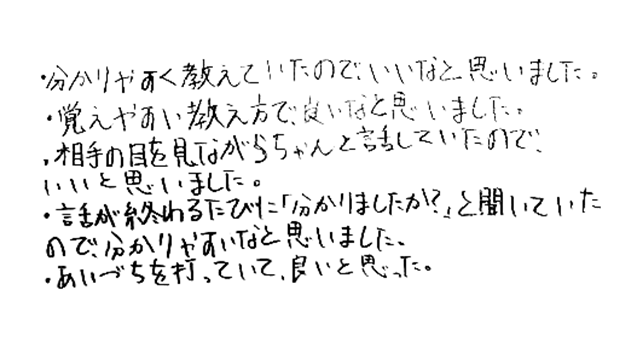 ・分かりやすく教えていたので、いいなと思いました。
・覚えやすい教え方で良いなと思いました。
・相手の目を見ながらちゃんと話していたので、
いいと思いました。
・話が終わるたびに「分かりましたか?」と聞いていた
ので、分かりやすいなと思いました。
・あいづちを打っていて、良いと思った。